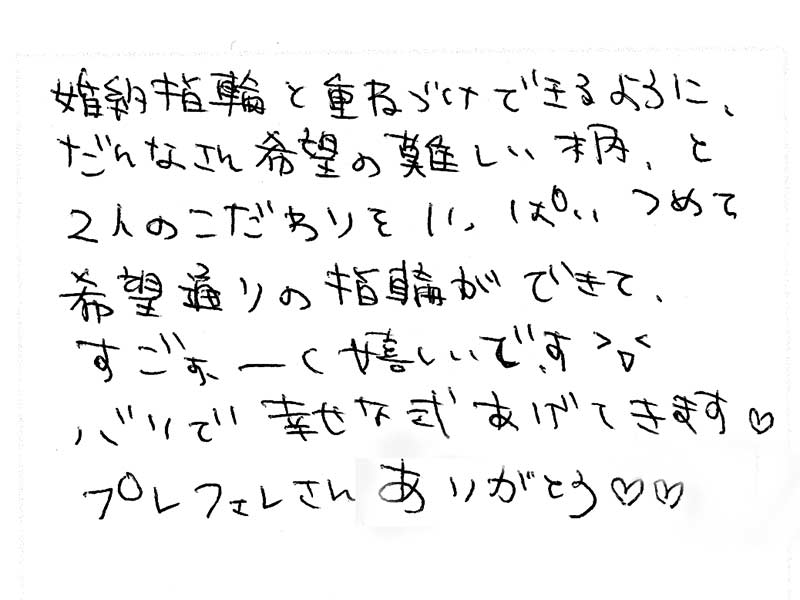 婚約指輪と重ねづけできるように、
だんなさん希望の難しい柄、と
2人のこだわりをいっぱいつめて
希望通りの指輪ができて、
すごぉーく嬉しいです >▽<
バリで幸せな式あげてきます♡
プレフェレさんありがとう♡♡